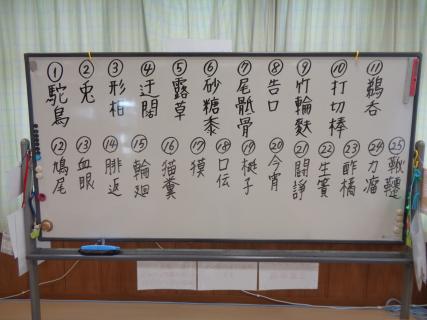 ①駝鳥
②兎
③形相
④迂闊
⑤露草
⑥砂糖黍
⑦尾骶骨
⑧告口
⑨竹輪麩
⑩打切棒
⑪鵜呑
⑫鳩尾
⑬血眼
⑭腓返
⑮輪廻
⑯猫糞
⑰獏
⑱口伝
⑲梃子
⑳今宵
㉑闘諍
㉒生簀
㉓酢橘
㉔力瘤
㉕鞦韆